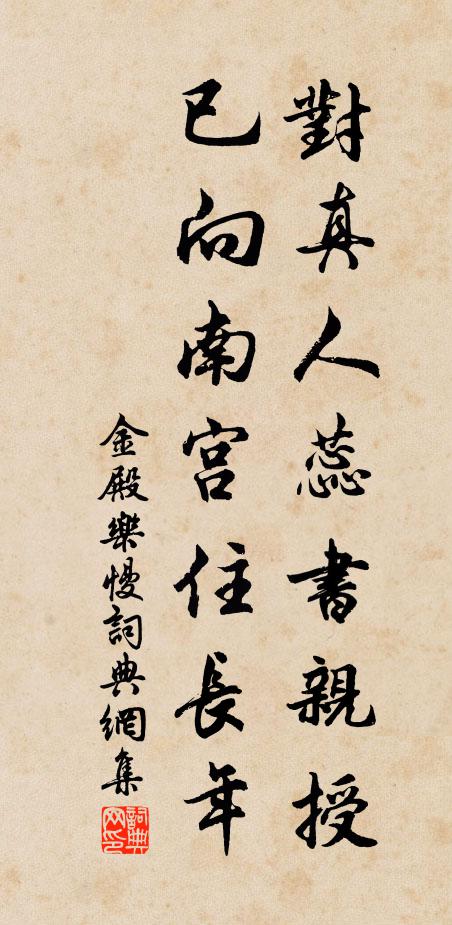 對真人蕊書親授
已向南宮住長年
金殿樂慢詞典網集
詞典网印